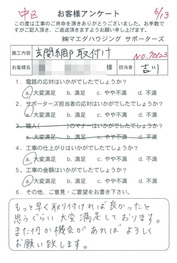 中区
お客様アンケート
6/13
この度は工事のご用命を頂きありがとうございました。お手数で
すがご記入頂き、ご返送頂きますようお願い申し上げます。
㈱マエダハウジング サポーターズ
施工内容
玄関網戸取付け
お名前
様
担当者
吉川
1. 電話の応対はいかがでしたでしょうか?
a. 大変満足 b. 満足 c. やや不満 d. 不満
2. サポーターズ担当者の応対はいかがでしたでしょうか?
a. 大変満足 b. 満足 c. やや不満 d. 不満
3. 職人( )のマナーはいかがでしたでしょうか?
a. 大変満足 b. 満足 c. やや不満 d. 不満
4. 工事の仕上がりはいかがでしたでしょうか?
a. 大変満足 b. 満足 c. やや不満 d. 不満
5. 工事価格はいかがでしたでしょうか?
a. 大変満足 b. 満足 c. やや不満 d. 不満
6. その他、ご意見・ご要望をお書き下さい。
もっと早く取り付ければ良かったと
思うぐらい大変満足しております。
また何か機会があればよろしく
お願い致します。